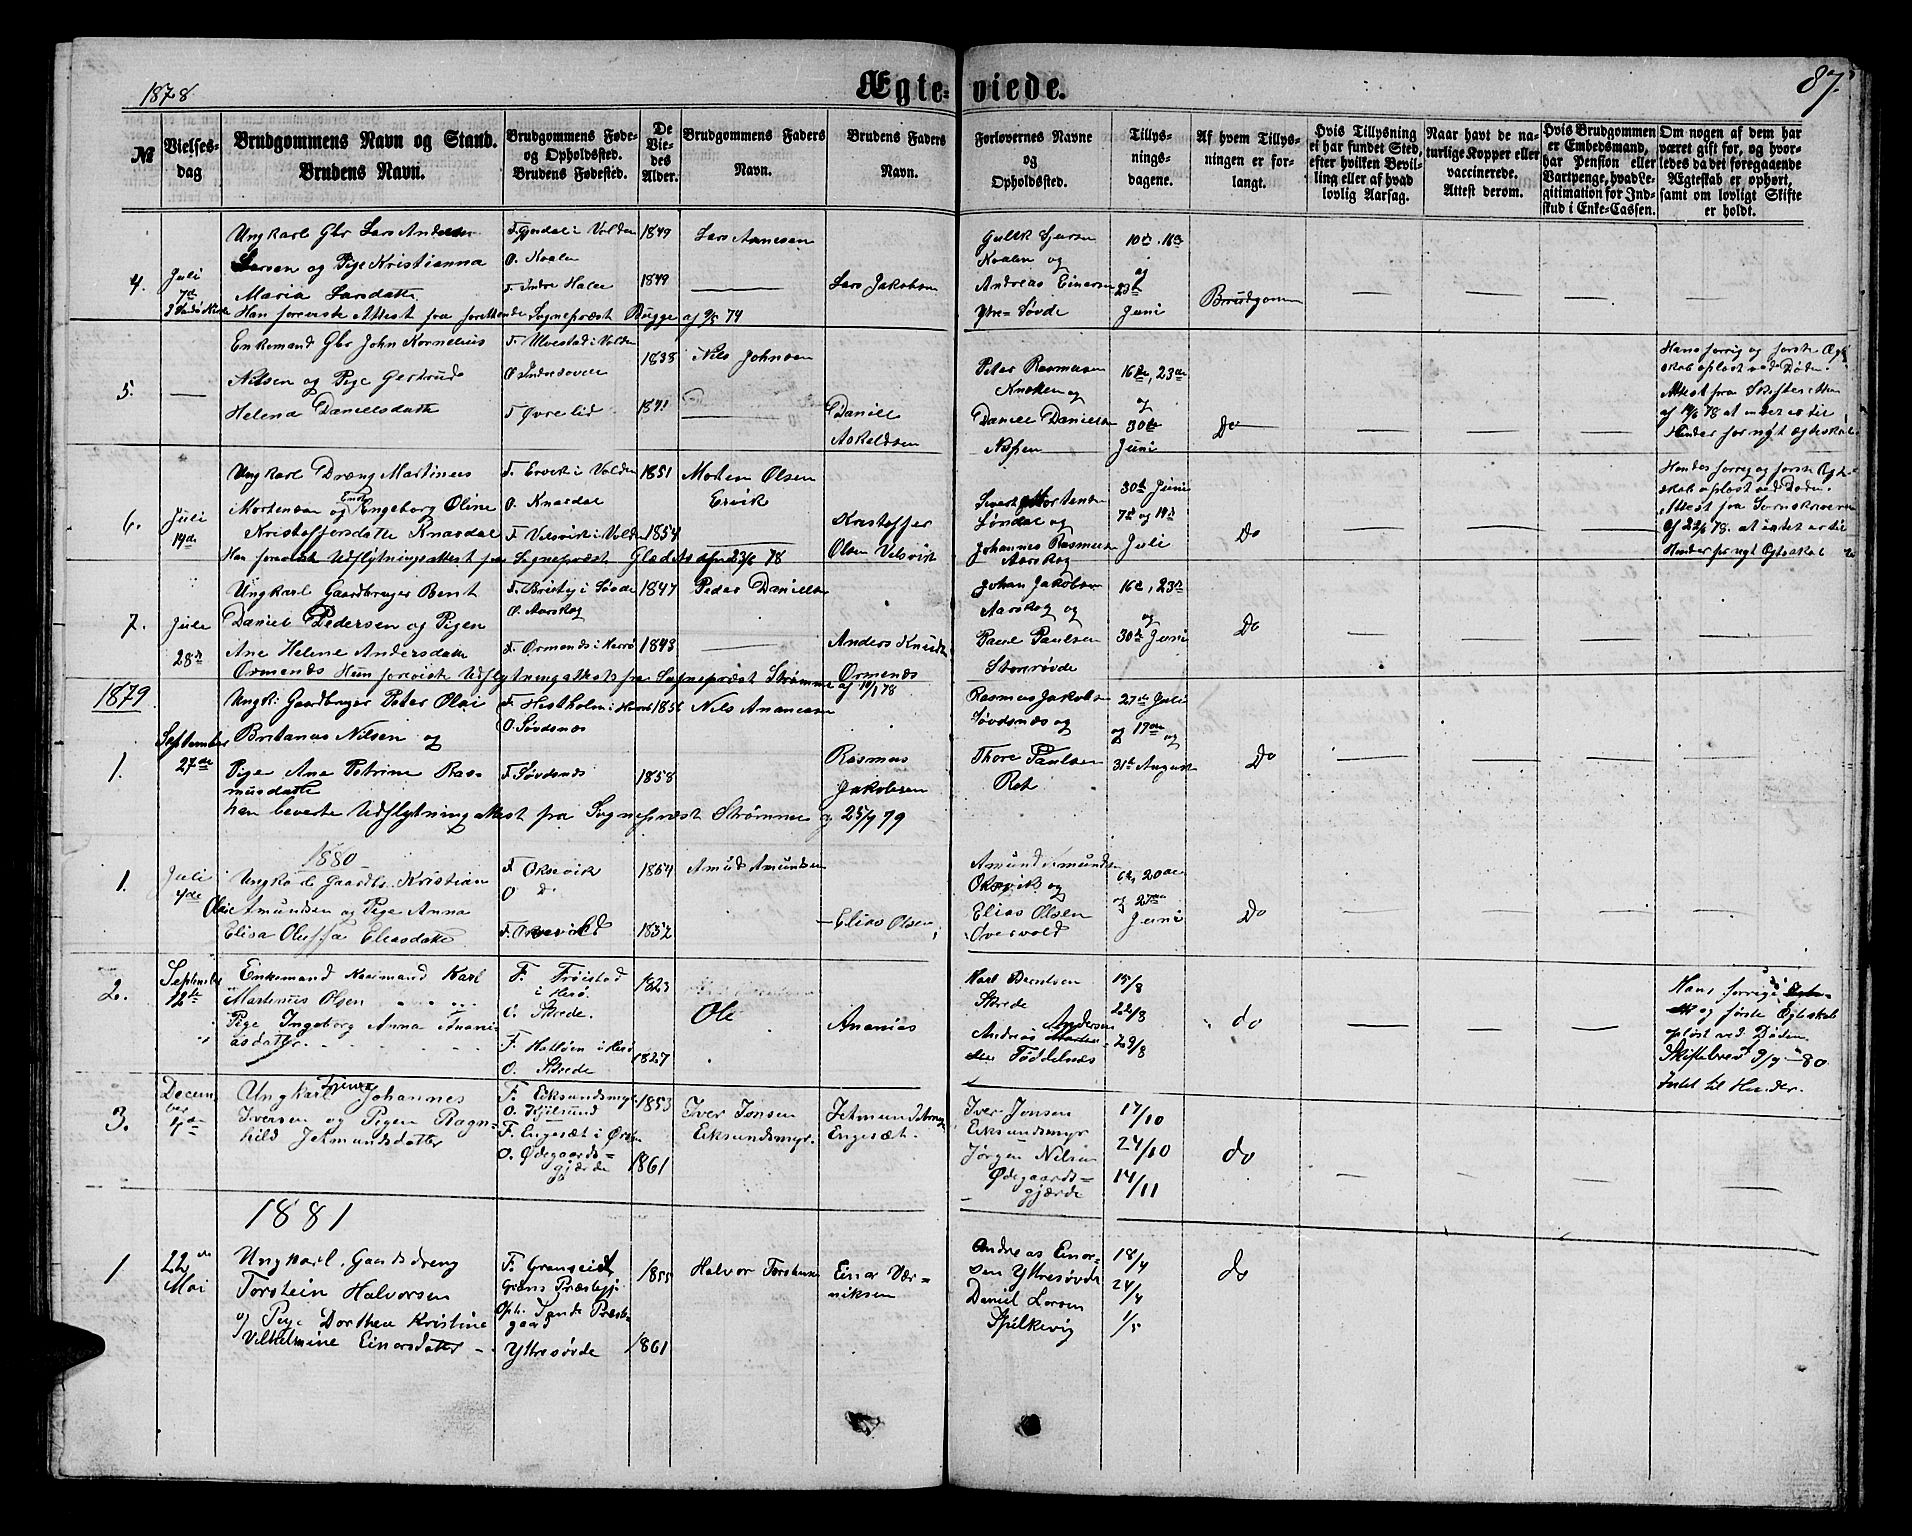 1878
Ægteviede.
87.
№
Vielsesdag
Brudgommens Navn og Stand.
Brudens Navn.
Brudgommens Føde-
og Opholdssted.
Brudens Fødested.
De
Vie-
des
Alder.
Brudgommens Faders
Navn.
Brudens Faders
Navn.
Forlovernes Navne
og
Opholdssted.
Tillys-
nings-
dagene.
Af hvem Tillys-
ningen er for-
langt.
Hvis Tillysning
ei har fundet Sted,
efter hvilken Bevil-
ling eller af hvad
lovlig Aarsag.
Naar havt de na-
turlige Kopper eller
vaccinerede.
Attest derom.
Hvis Brudgommen
er Embedsmand,
har Pension eller
Vartpenge, hvad Le-
gitimation for Ind-
skud i Enke-Cassen.
Om nogen af dem har
været gift før, og hvor-
ledes da det foregaaende
Ægteskab er ophørt,
samt om lovligt Skifte
er holdt.
4.
Juli
7de
Ungkarl Gbr Lars Andreas
Larsen og Pige Kristianna
Maria Larsdatter
Han foreviste Attest fra Sognepræst Bugge af 9/5 74
i Volden
O. Koalen
F. Indre
1849
1849
Lars
Lars Jakobsen
Koalen og
Andreas Einarsen
Ytre-Søvde
10de, 16de
og
23de
Juni
Brudgom
5.
Enkemand Gbr John Kornelius
Nilsen og Pige Gertrude
Helena Danielsdatter
F. Ulvestad i Volden
F. Øvrelid
1838
1841
Nils Johnsen
Daniel
Askeldsen
Peter Rasmusen
Knotten og
Daniel Danielsen
16de, 23de
og
30te
Juni
Do
Hans forrig og første Ægte-
skab opløst ved Døden.
Attest fra Skifteretten
af 14/6 78 at intet er til
Hinder for nyt Ægteskab
6.
Juli
14de
Ungkarl Dræng Martinus
Mortensen og Enke Ingeborg Oline
Kristoffersdatter Knardal
Han foreviste Udflytningsattest fra Sognepræst Gladets af 23/6 78
F. Ervik i Volden
O. Knardal
F. Velsvik i Volden
1851
1854
Morten Olsen
Ervik
Kristoffer
Olsen Velsvik
Sivert Mortensen
Søndal og
Johannes Rasmusen
Aarskog
30te Juni
7de og 14de
Juli
Do
Hendes forrig og første Ægte-
skab opløst ved Døden.
Attest fra Sorenskriveren
af 22/6 78. at intet er til
Hinder for nyt Ægteskab
7.
Juli
28de
Ungkarl Gaardbruger Bent
Daniel Pedersen og Pigen
Ane Helene Andersdatter
Ormends Hun foreviste Udflytningsattest fra Sognepræst Strømme af 10/1 78
F. i Søvde
O. Aarskog
F. Ormends i Herrø
1847
1843
Peder Danielsen
Anders Knudsen
Ormends
Johan Jakobsen
Aarskog og
Paul Paulsen
16de, 23de
og
30te Juni
Do
1879
1.
September
27de
Ungk: Gaardbruger Peter Olai
Britanus Nilsen og
Pige Ane Petrine Ras-
musdatter
han beverte Udflytningattest fra Sognepræst Strømme af 25/9 79
F. Hestholm i Herrø
O. Søvdsnæs
F. Søvdsnæs
1856
1858
Nils Ananiasen
Rasmus
Jakobsen
Rasmus Jakobsen
Søvdsnæs og
Thore Paulsen
Røt
27de Juli
og 17de og
31te August
Do
1880
1.
Juli
4de
Ungkarl Gaardbr. Kristian
Olai Amundsen og Pige Anna
Elisa Oluffa Eliasdatter
F. Oksevik
O do
1854
1852
Amund Amundsen
Elias Olsen
Amund Amundsen
Oksvik og
Elias Olsen
6te, 20de
og 27de
Juni
Do
2.
September
12te
Enkemand Kaarmand Karl
Martinus Olsen
Pige Ingeborg Anna Anani-
asdatter.
F. Frøistad
i Herø.
O. Skrede.
F. i Herø
O. Skrede
1823
1827
Ole
Ananias
Karl
Skrede
Andreas Andersen
15/8
22/8
29/8
do
Hans forrige
og første Ægteskab
opløst ved Døden.
Skiftebrev 9/9 - 80.
Intet til Hinder.
3.
Decem-
ber
4de
Ungkarl Johannes
Iversen og Pigen Ragn-
hild Jetmundsdatter
F. Eiksundsmyr
F. Engesæt i Ørsten
O. Ødegaards-
gjærde
1853
1861
Iver Jonsen
Eiksundsmyr.
Jetmund
Engesæt.
Iver Jonsen
Eiksundsmyr
Jørgen Nilsen
Ødegaards-
gjærde
17/10
24/10
14/11
do
1881
1
22de
Mai
Ungkarl, Gaardsdreng
Torstein Halvorsen
og Pige Dorthea Kristine
Vilhelmine Einarsdatter
F. Grangeid
Grans Præstegj:
Oph: Sands Præste-
gaard
Yttresøvde
1855
1861
Halvor Torstensen
Einar Vær-
niksen
Andreas Einar-
sen Yttresøvde
Daniel Larsen
Spilkevig
18/4
24/4
1/5
do